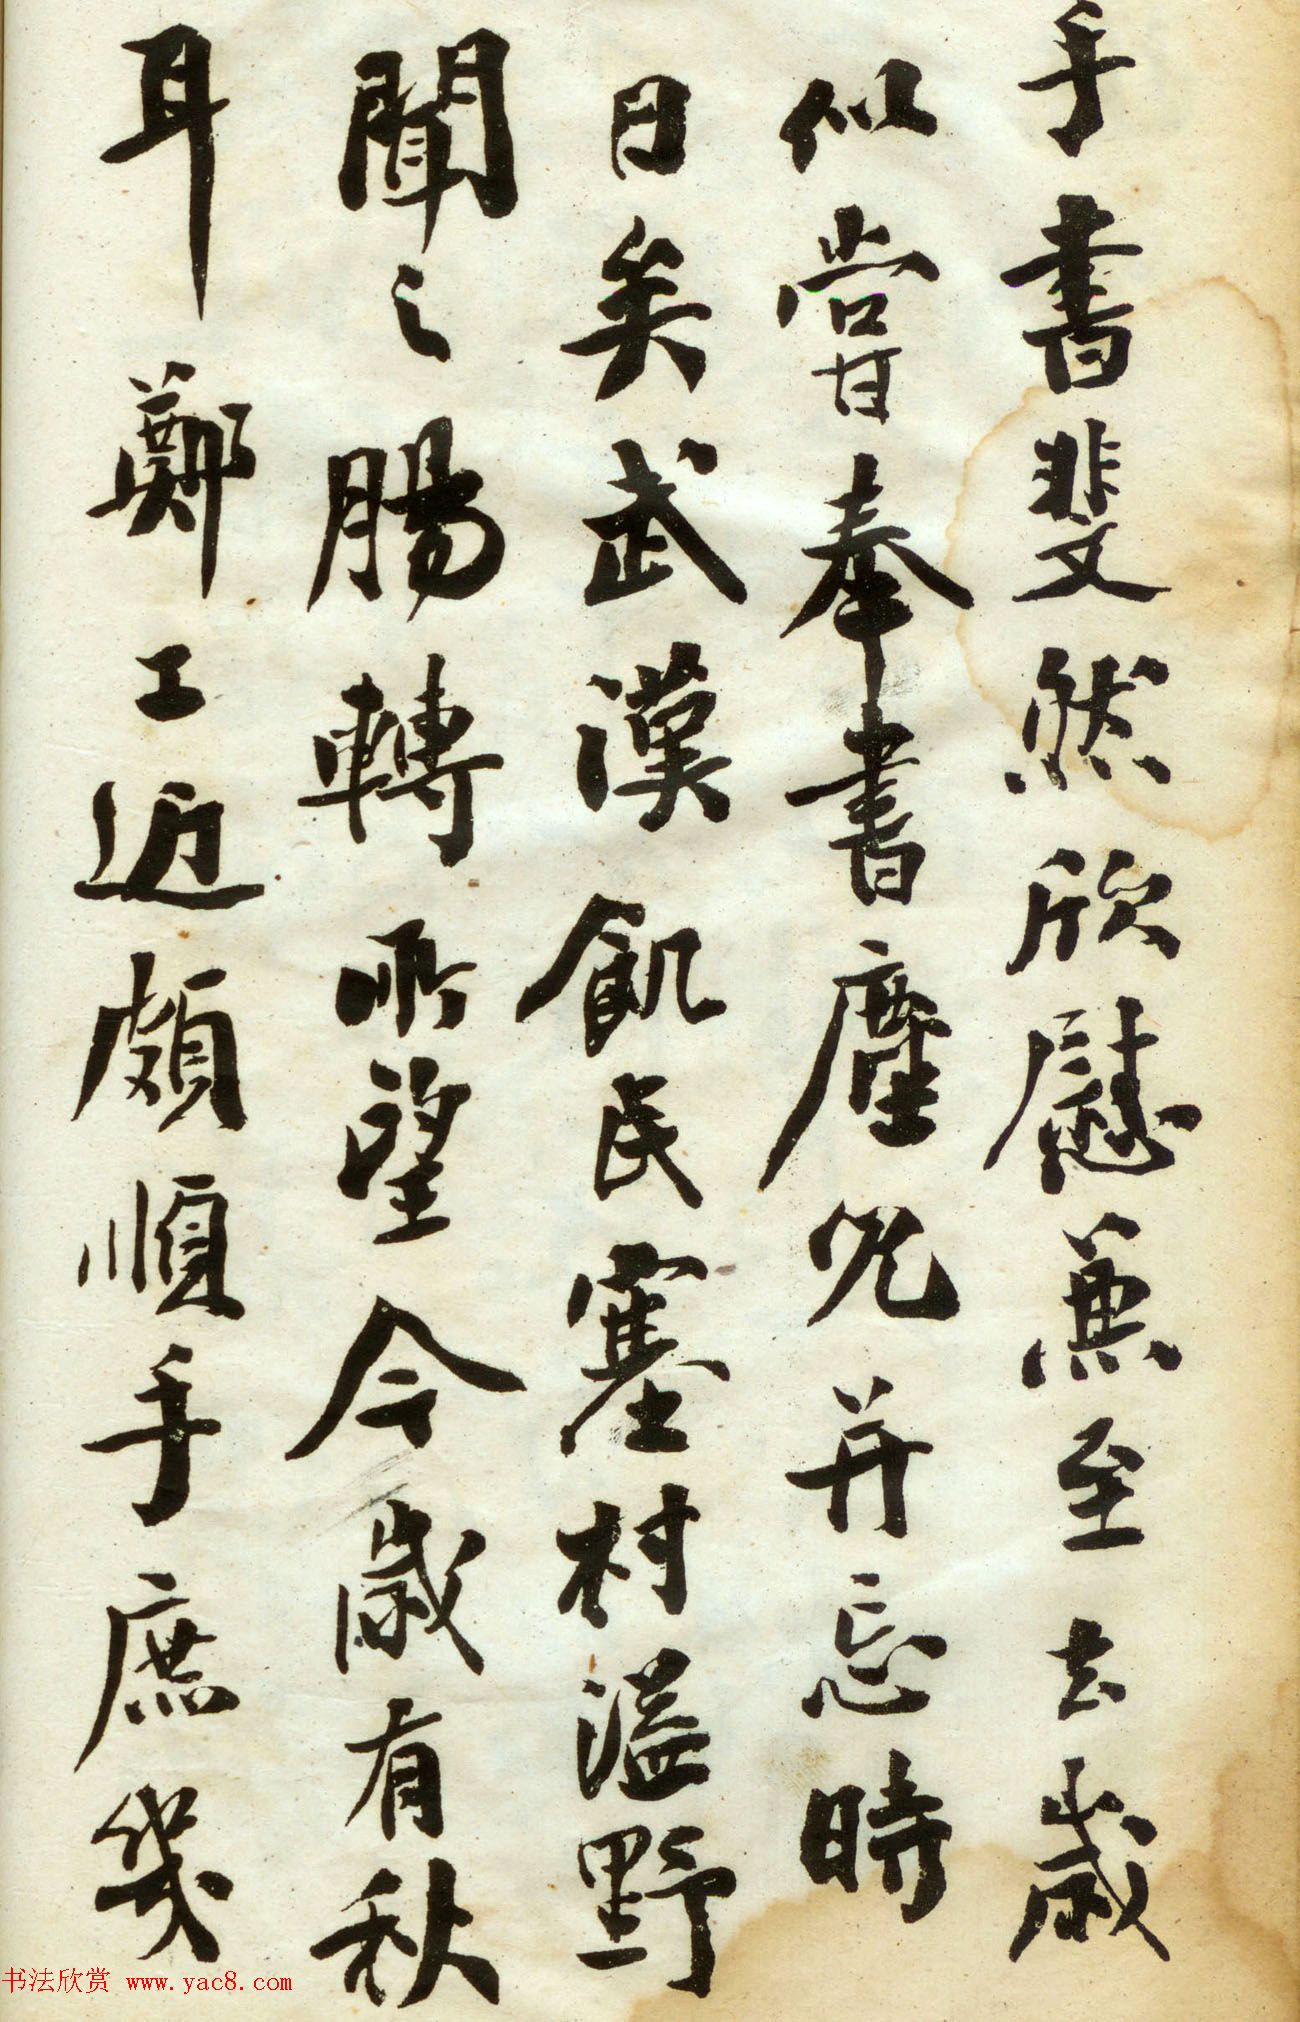 手書斐然欣慰兼至去歲
似嘗奉書塵咒并忘時
日矣武漢飢民塞村溢野
聞之腸轉所望今歲有秋
耳鄭工近頗順手庶幾
书法欣赏 www.yac8.com